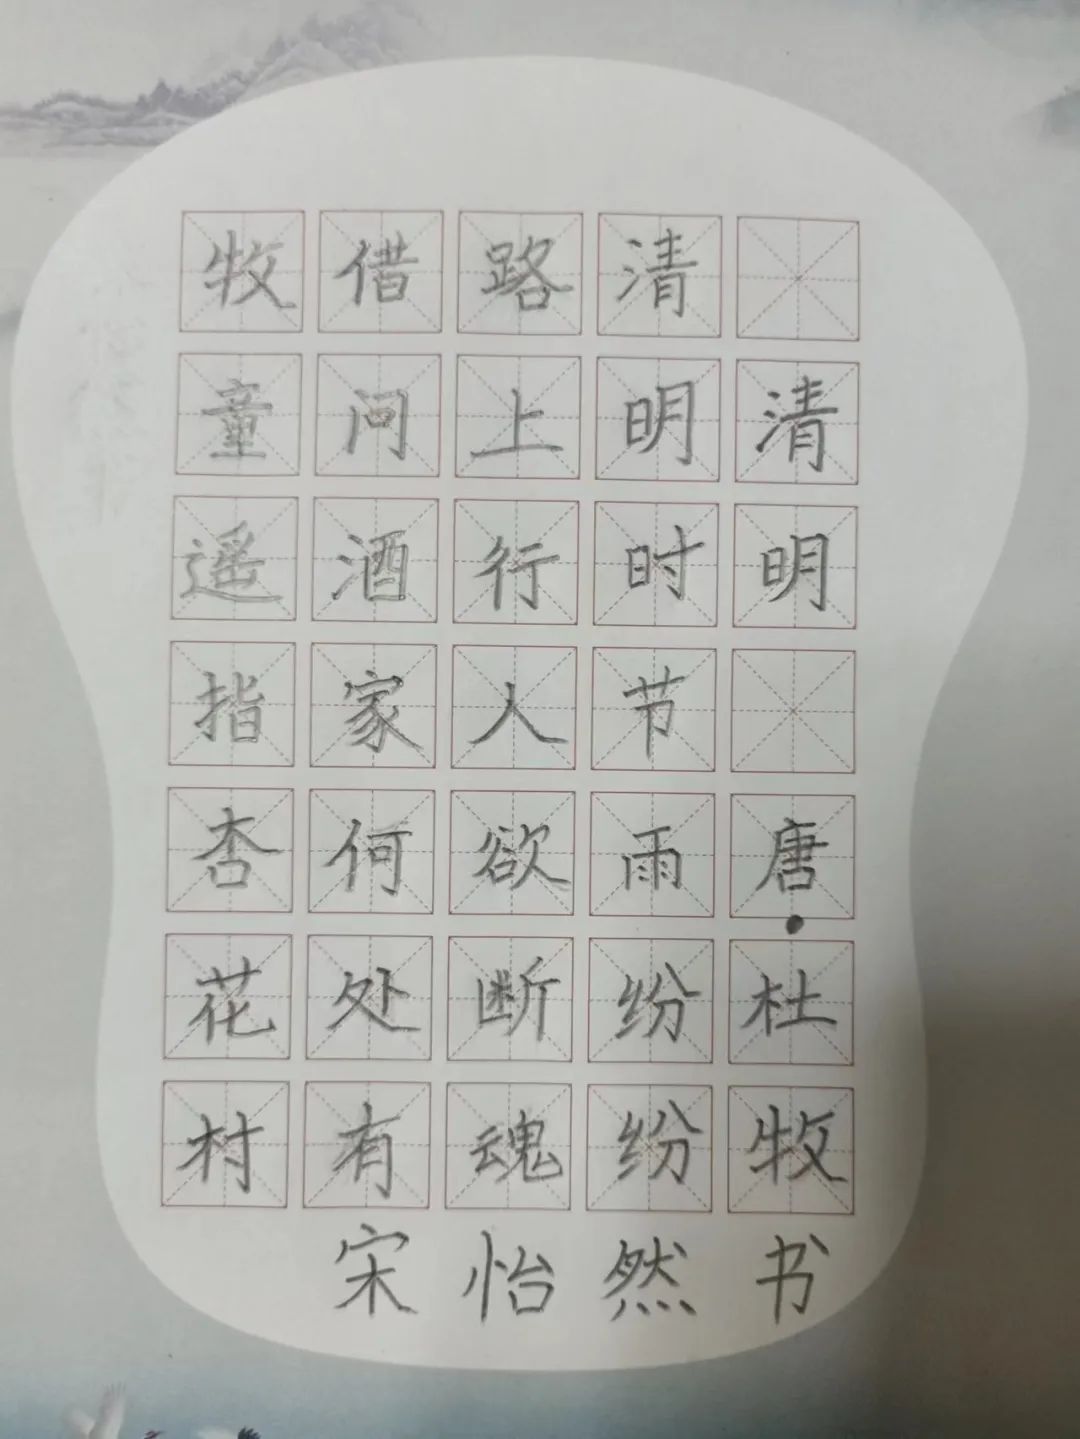 清明
唐·杜牧
清明时节雨纷纷
路上行人欲断魂
借问酒家何处有
牧童遥指杏花村
宋怡然书